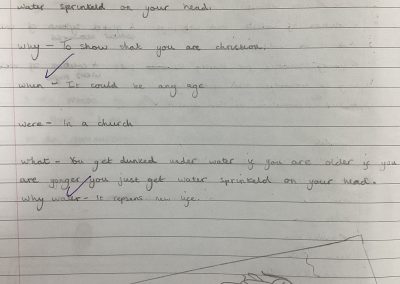 water sprinkeld on your head.
why - To show that you are christian.
when - It could be any age
were - In a church
what - You get dunked under water if you are older if you
are yonger you just get water sprinkeld on your head.
why water - It repsens new life.